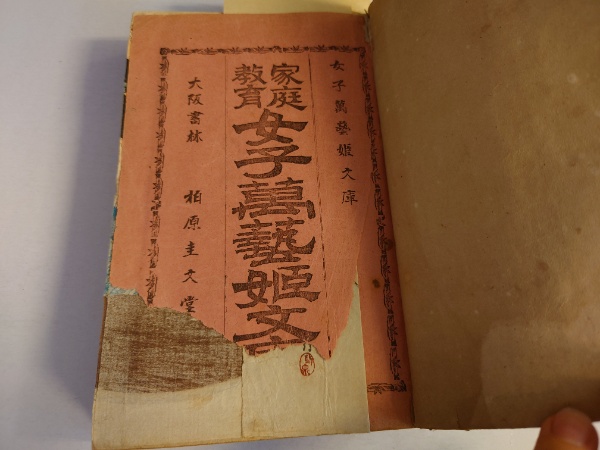 女子萬藝姫文庫
家庭
教育
女子萬藝姫文
大阪書林 柏原圭文堂